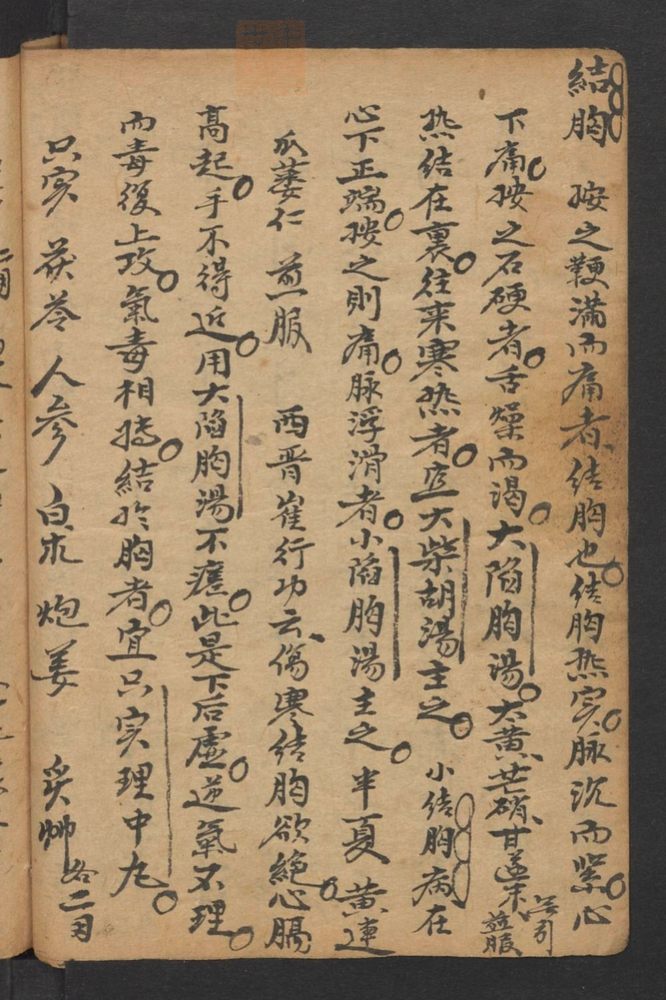 結胸　按之鞕滿而痛者、結胸也。結胸热实。脉沉而緊。心
下痛。按之石硬者。舌燥而渴。大陷胸湯。大黄、芒硝、甘遂末
热结在裏。往来寒热者。宜大柴胡湯主之。　小结胸病在
心下正端。按之則痛。脉浮滑者。小陷胸湯主之。半夏　黄連
瓜蒌仁　煎服　西晋崔行功云、傷寒结胸欲絶。心膈
高起。手不得近。用大陷胸湯不瘥。此是下后虚逆氣不理。
而毒復上攻。氣毒相搏。結於胸者。宜只实理中丸。
只实　茯苓　人參　白朮　炮姜　炙艸　各二刄